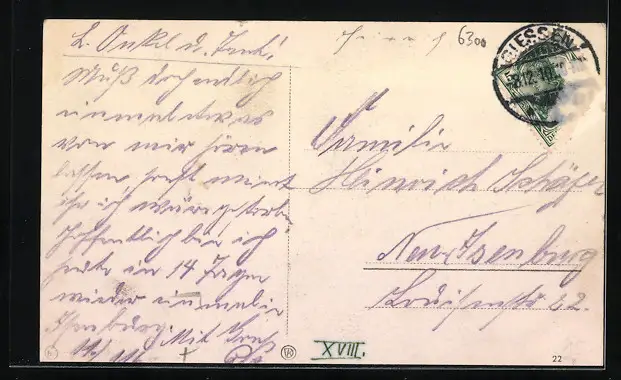 L. Onkel u. Tante!
Muß doch endlich
einmal etwas
von mir hören
lassen sonst meint
ihr ich wäre gestorben
Hoffentlich bin ich
heute in 14 Tagen
wieder einmal in
Isenburg. Mit Gruß
6300
GIESSEN
12.10
Familie
Heinrich Schäfer
Neu-Isenburg
Louisenstr 22.
XVIII.
22